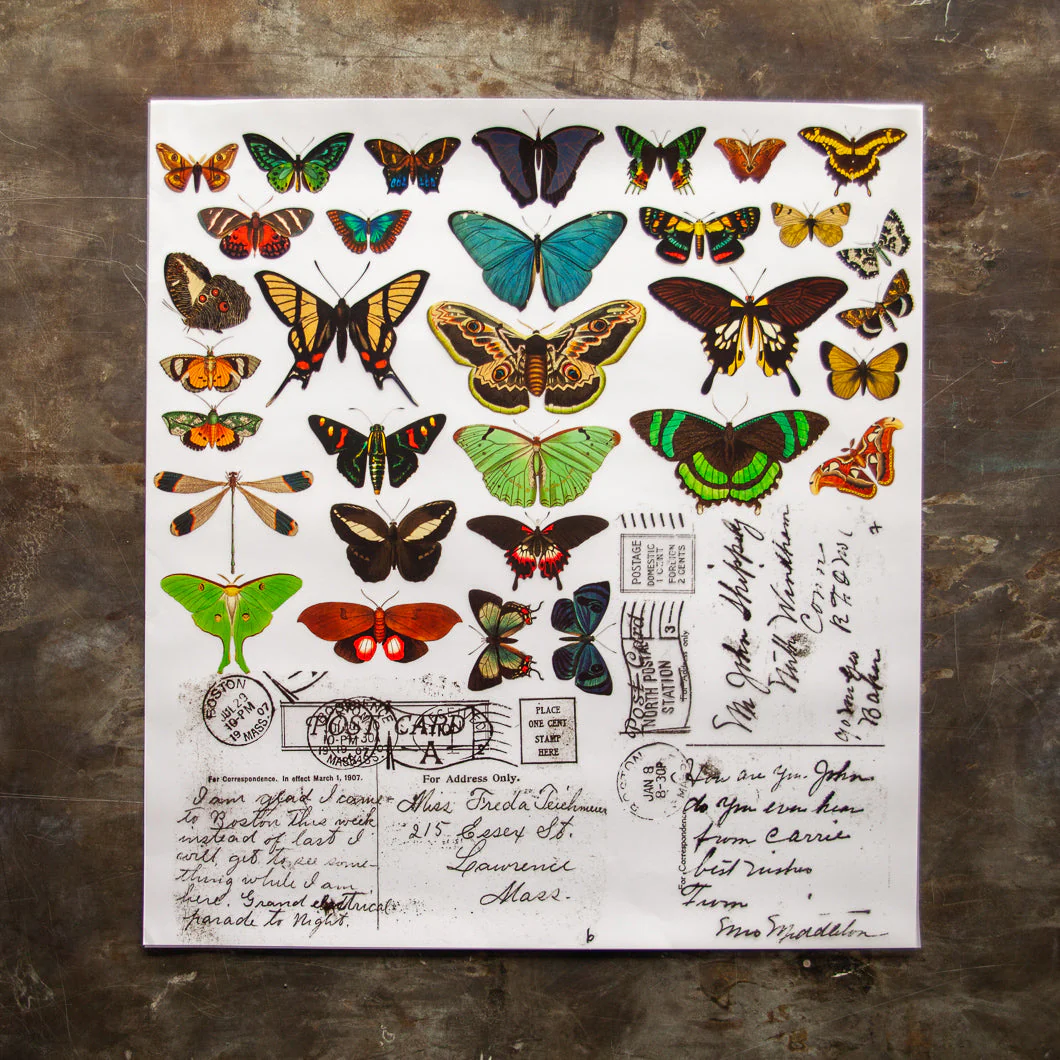 POSTAGE
DOMESTIC
1 CENT
FOREIGN
2 CENTS
Post Card
NORTH POSTAL
STATION
3
only
Mr John Shippey
North Windham
Conn
BOSTON
JUL 29
19-PM
MASS. 07
POST CARD
A
2
PLACE
ONE CENT
STAMP
HERE
For Correspondence. In effect March 1, 1907.
For Address Only.
I am glad I came
to Boston this week
instead of last I
will get to see some-
thing while I am
here. Grand electrical
parade to Night.
Miss Freda Teichmeier
215 Essex St.
Lawrence
Mass.
BOSTON
JAN 8
8-30PM
For Correspondence
How are you John
do you ever hear
from Carrie
best wishes
From
Middleton
b